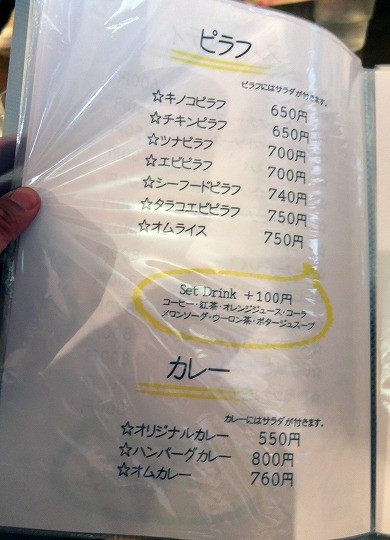 ピラフ
ピラフにはサラダが付きます。
☆キノコピラフ 650円
☆チキンピラフ 650円
☆ツナピラフ 700円
☆エビピラフ 700円
☆シーフードピラフ 740円
☆タラコエビピラフ 750円
☆オムライス 750円
Set Drink +100円
コーヒー・紅茶・オレンジジュース・コーラ
メロンソーダ・ウーロン茶・ポタージュスープ
カレー
カレーにはサラダが付きます。
☆オリジナルカレー 550円
☆ハンバーグカレー 800円
☆オムカレー 760円